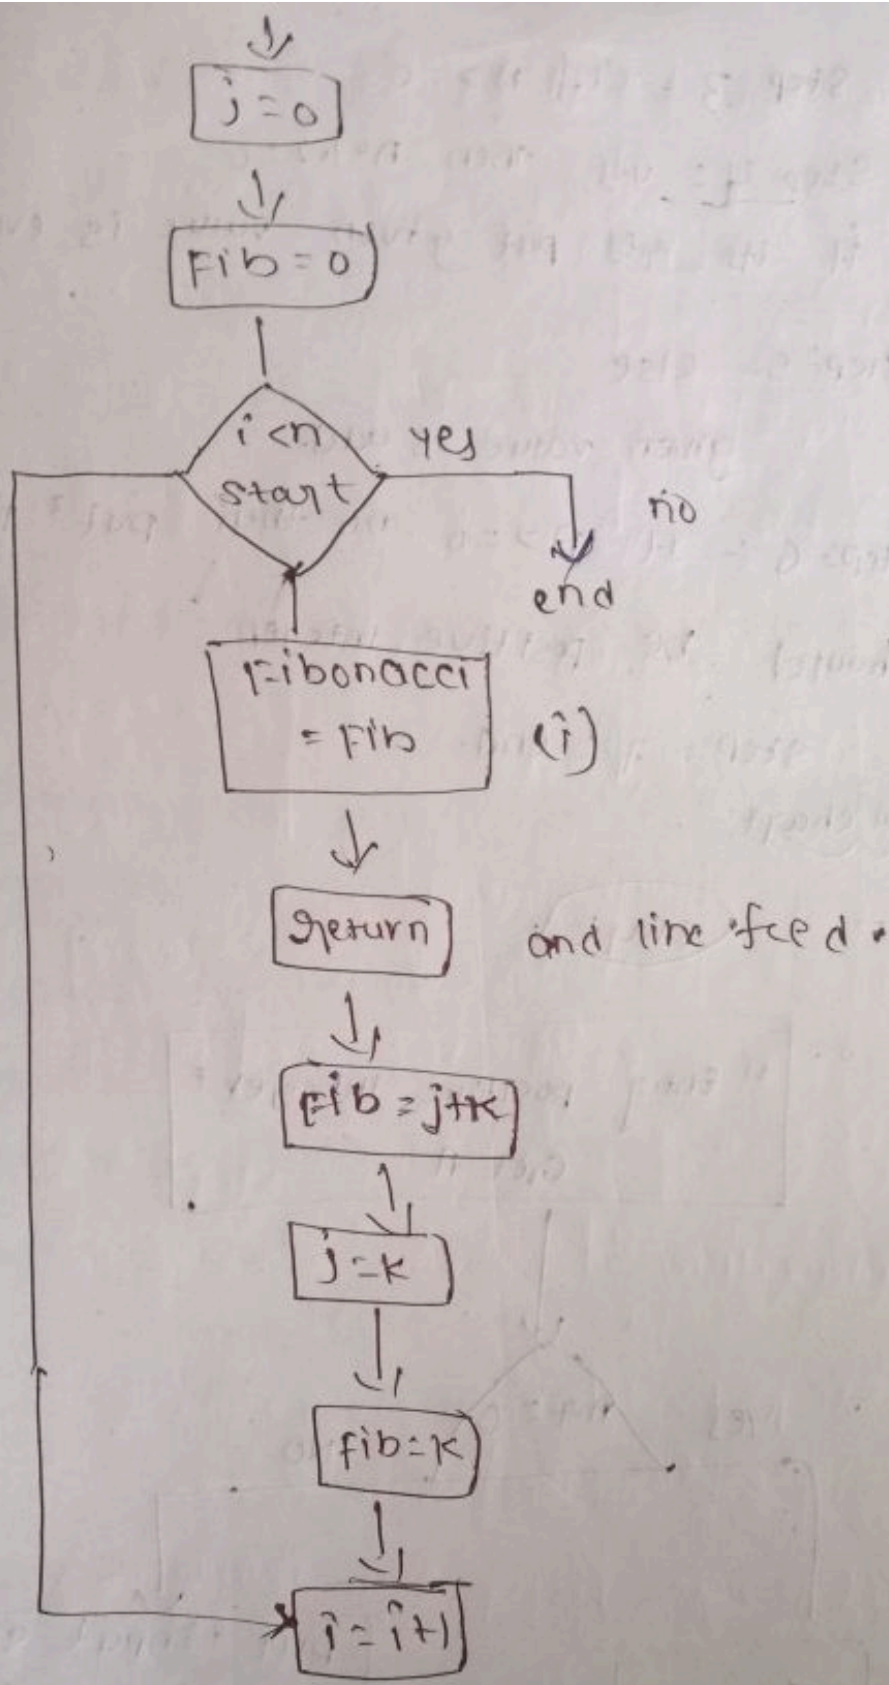 j=0
Fib=0
i<n
start
yes
no
end
Fibonacci
= Fib
(i)
return
and line feed.
Fib=j+k
j=k
fib=k
i=i+1